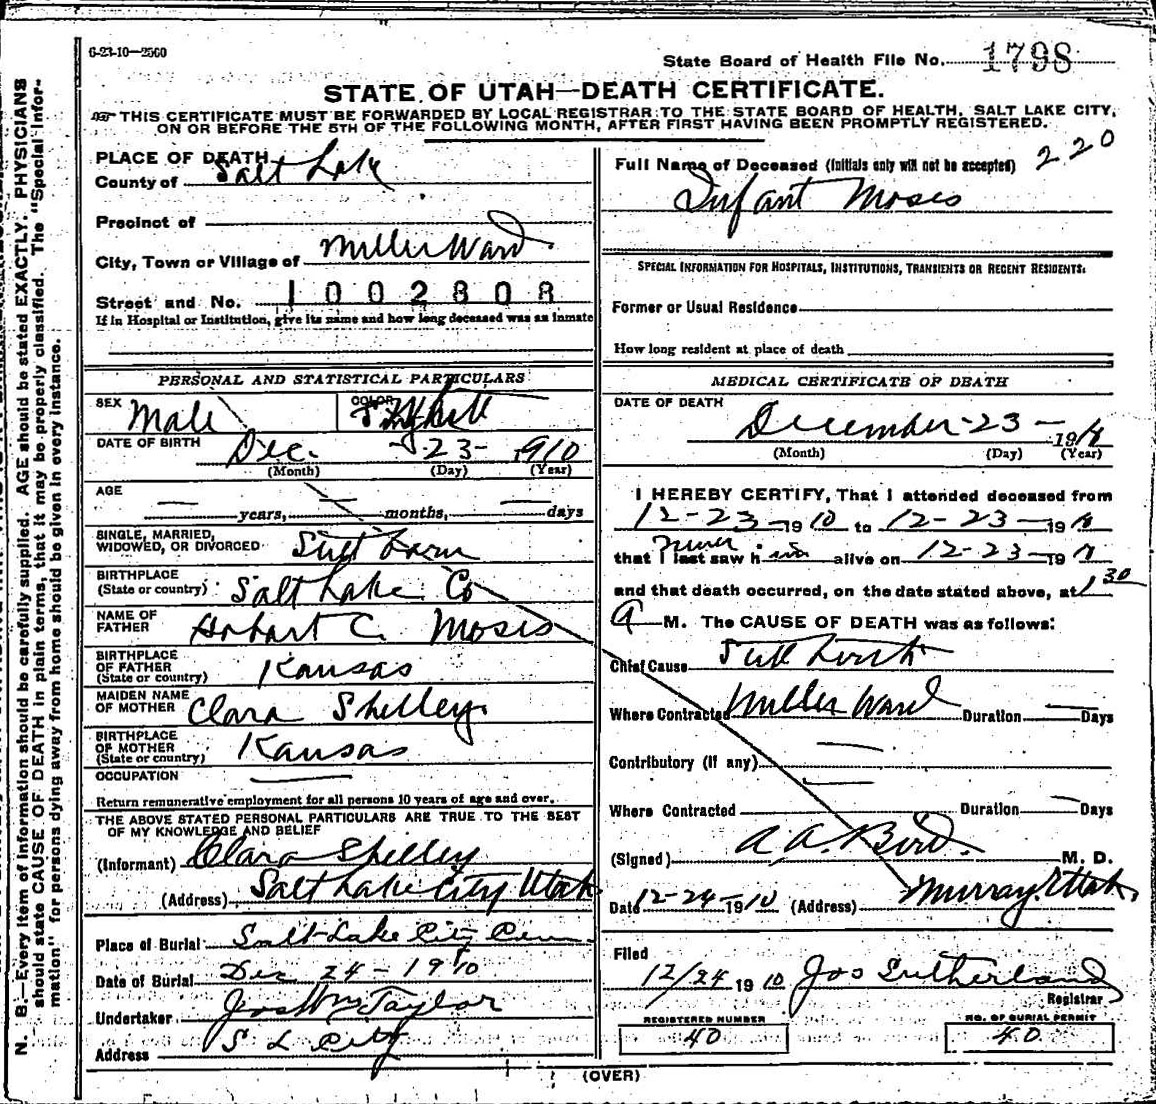 6-23-10—2560
State Board of Health File No. 1798
STATE OF UTAH—DEATH CERTIFICATE.
THIS CERTIFICATE MUST BE FORWARDED BY LOCAL REGISTRAR TO THE STATE BOARD OF HEALTH, SALT LAKE CITY,
ON OR BEFORE THE 5TH OF THE FOLLOWING MONTH, AFTER FIRST HAVING BEEN PROMPTLY REGISTERED.
N. B.—Every item of information should be carefully supplied. AGE should be stated EXACTLY. PHYSICIANS
should state CAUSE OF DEATH in plain terms, that it may be properly classified. The "Special Infor-
mation" for persons dying away from home should be given in every instance.
PLACE OF DEATH
County of Salt Lake
Precinct of
City, Town or Village of Miller Ward
Street and No. 1002808
If in Hospital or Institution, give its name and how long deceased was an inmate
PERSONAL AND STATISTICAL PARTICULARS
SEX Male COLOR White
DATE OF BIRTH Dec. 23 - 1910
(Month) (Day) (Year)
AGE
years, months, days
SINGLE, MARRIED,
WIDOWED, OR DIVORCED Still born
BIRTHPLACE
(State or country) Salt Lake Co
NAME OF
FATHER Hobart C. Moses
BIRTHPLACE
OF FATHER
(State or country) Kansas
MAIDEN NAME
OF MOTHER Clara Shelley
BIRTHPLACE
OF MOTHER
(State or country) Kansas
OCCUPATION
Return remunerative employment for all persons 10 years of age and over.
THE ABOVE STATED PERSONAL PARTICULARS ARE TRUE TO THE BEST
OF MY KNOWLEDGE AND BELIEF
(Informant) Clara Shelley
(Address) Salt Lake City Utah
Place of Burial Salt Lake City Cem.
Date of Burial Dec 24 - 1910
Undertaker Jos Wm Taylor
Address S L City
Full Name of Deceased (Initials only will not be accepted) 220
Infant Moses
SPECIAL INFORMATION FOR HOSPITALS, INSTITUTIONS, TRANSIENTS OR RECENT RESIDENTS.
Former or Usual Residence
How long resident at place of death
MEDICAL CERTIFICATE OF DEATH
DATE OF DEATH
December - 23 - 1910
(Month) (Day) (Year)
I HEREBY CERTIFY, That I attended deceased from
12-23-1910 to 12-23-1910
that I never last saw him alive on 12-23-1910
and that death occurred, on the date stated above, at 1 30
A M. The CAUSE OF DEATH was as follows:
Chief Cause Still birth
Where Contracted Miller Ward Duration Days
Contributory (if any)
Where Contracted Duration Days
(Signed) A. A. Bird. M. D.
Date 12-24-1910 (Address) Murray, Utah
Filed
12/24 1910 Jos Sutherland
Registrar
REGISTERED NUMBER
40
NO. OF BURIAL PERMIT
40
(OVER)